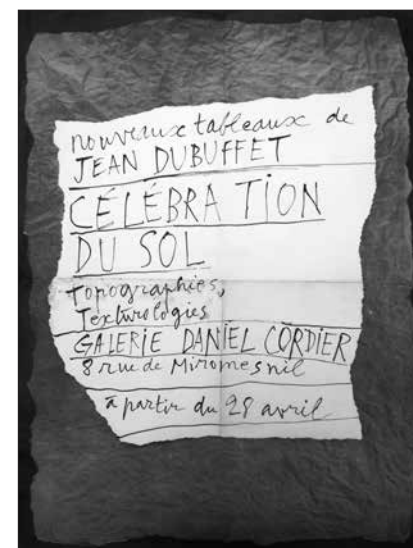 nouveaux tableaux de
JEAN DUBUFFET
CÉLÉBRATION
DU SOL
topographies,
Texturologies
GALERIE DANIEL CORDIER
8 rue de Miromesnil
à partir du 28 avril